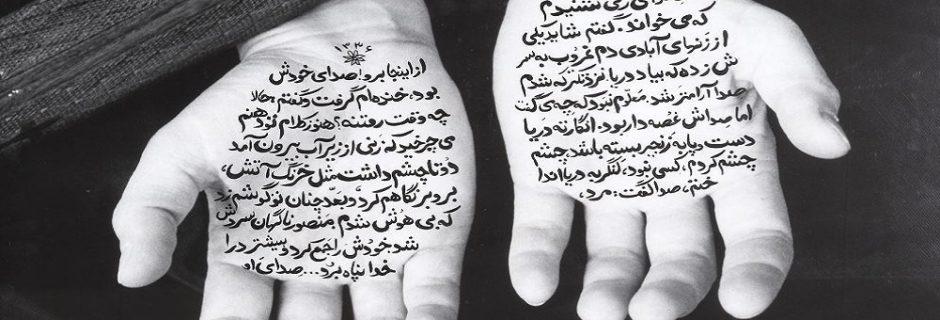 صدای زنی شنیدم
که می خواند. گفتم شاید یکی
از زنهای آبادی دم غروب به سر
ش زده که بیاد دریا. نزدیکتر که شدم
صدا آرامتر شد. معلوم نبود که چه می گفت
اما صداش غصه دار بود. انگار ته دریا
دست و پا به زنجیر بسته باشد چشم
چشم کردم، کسی نبود، لنگر به دریا اندا
ختم، صدا گفت: مرد،
۱۳۳۶
از اینجا برو! صدای خودش
بود، خنده ام گرفت و گفتم حالا
چه وقت رفتنه؟ هنوز کلام تو دهنم
می چرخید که زنی از زیر آب بیرون آمد
دو تا چشم داشت مثل دو تا آتش،
بروبر نگاهم کرد و بعد چنان تو گوشم زد
که بی هوش شدم. منصور ناگهان سردش
شد خودش را جمع کرد و بیشتر در
خدا پناه برد... صدای او